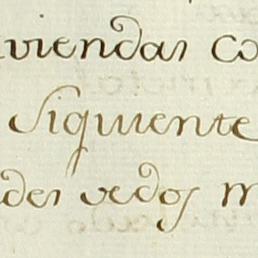 viendas co
Siguiente
des vedos m